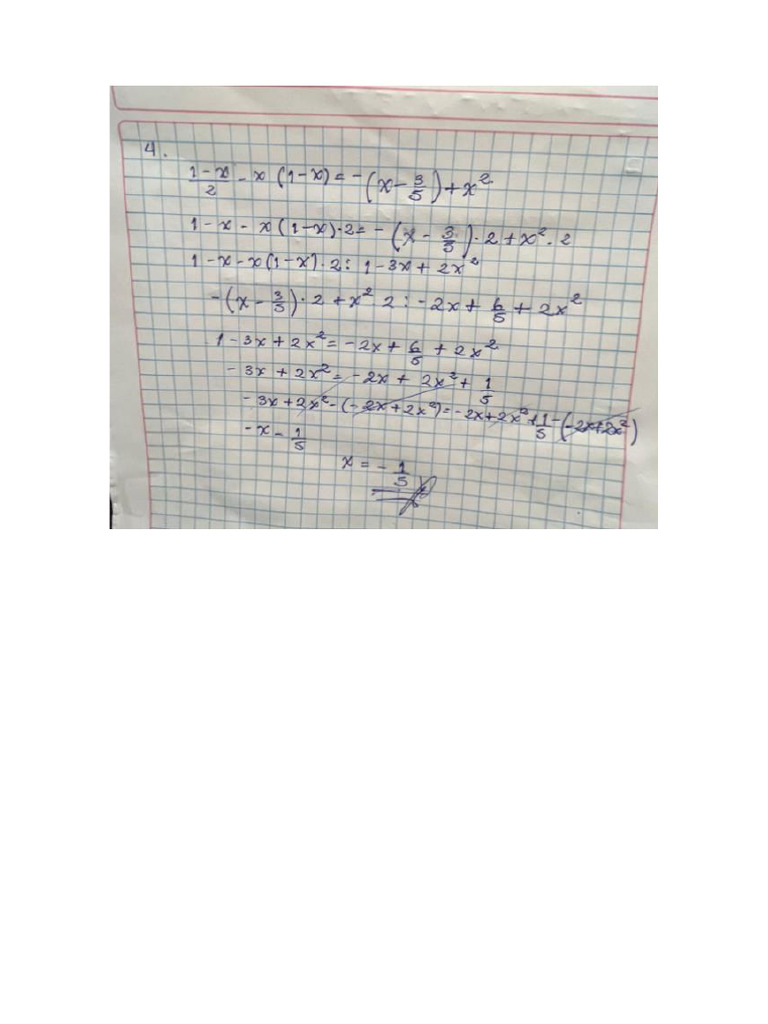 4.
1-x/2 - x (1-x) = -(x - 3/5) + x²
1-x - x(1-x)·2 = -(x - 3/5)·2 + x²·2
1-x-x(1-x)·2: 1-3x+2x²
-(x - 3/5)·2 + x² 2: -2x + 6/5 + 2x²
1-3x+2x² = -2x + 6/5 + 2x²
-3x + 2x² = -2x + 2x² + 1/5
-3x+2x²-(-2x+2x²) = -2x+2x²+1/5-(-2x+2x²)
-x - 1/5
x = - 1/5